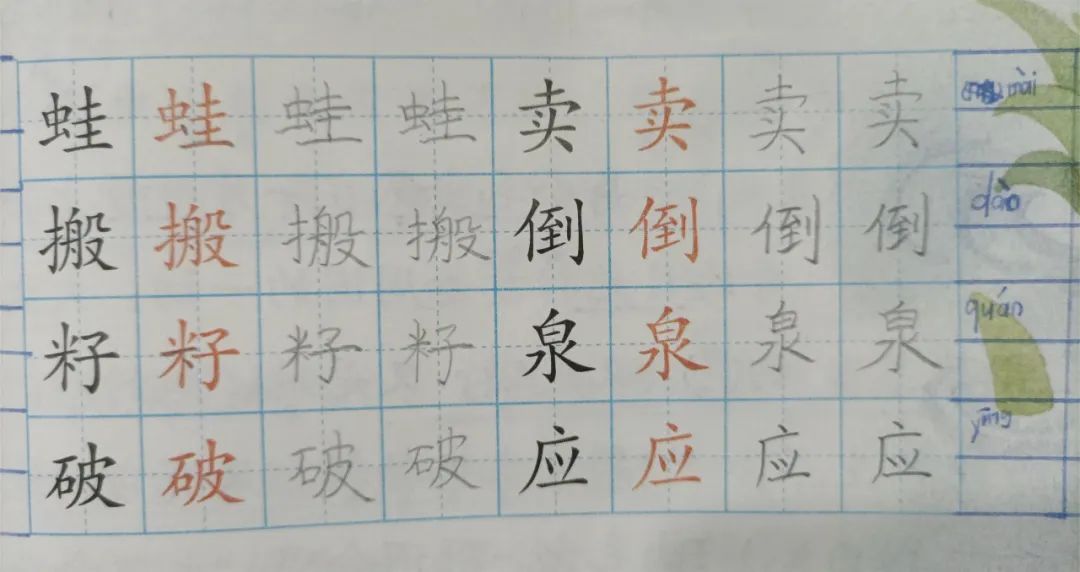 蛙 蛙 蛙 蛙 卖 卖 卖 卖 mài
搬 搬 搬 搬 倒 倒 倒 倒 dào
籽 籽 籽 籽 泉 泉 泉 泉 quán
破 破 破 破 应 应 应 应 yīng